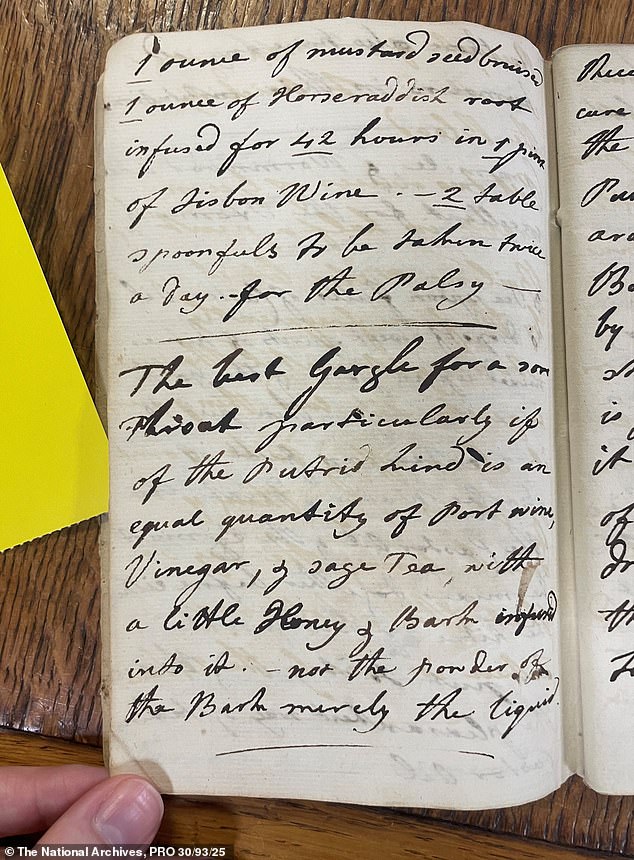 1 ounce of mustard seed bruised
1 ounce of Horseraddish root
infused for 42 hours in 1 pint
of Lisbon Wine . - 2 table
spoonfuls to be taken twice
a day - for the Palsy —
The best Gargle for a sore
Throat particularly if
of the Putrid kind is an
equal quantity of Port wine,
Vinegar, & sage Tea with
a little Honey & Bark infused
into it . - not the powder of
the Bark merely the liquid
cure
the
by
is
it
of
© The National Archives, PRO 30/93/25